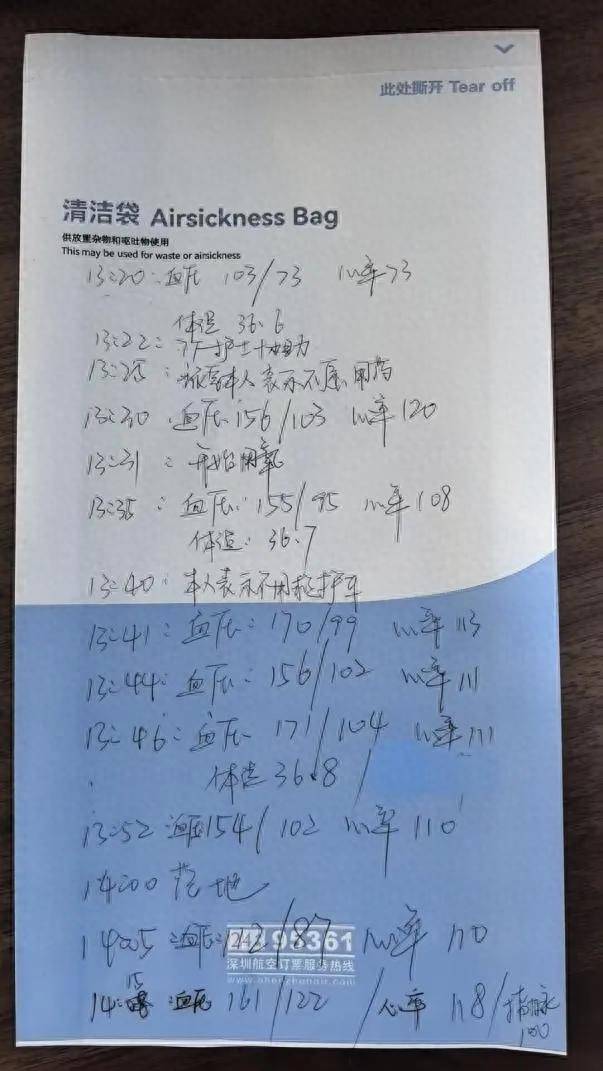 此处撕开 Tear off
清洁袋 Airsickness Bag
供放置杂物和呕吐物使用
This may be used for waste or airsickness
13:20:血压 103/73 心率73
体温 36.6
13:22: 护士协助
13:25: 本人表示不愿用药
13:30 血压156/103 心率120
13:31:开始用氧
13:35:血压:155/95 心率108
体温:36.7
13:40:本人表示不用救护车
13:41:血压:170/99 心率113
13:44:血压:156/102 心率111
13:46:血压 171/104 心率111
体温36.8
13:52 血压154/102 心率110
14:00 落地
14:05 血压: /87 心率110
95361
深圳航空订票服务热线
www.shenzhenair.com
14:15 血压 161/122 / 心率 118/
100